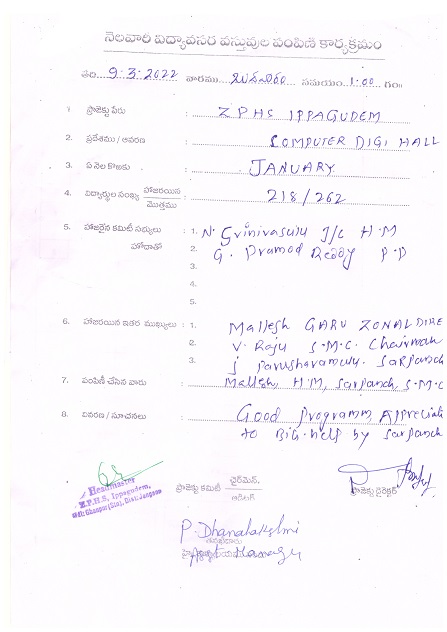 నెలవారి విద్యావసర వస్తువుల పంపిణి కార్యక్రమం
తేది 9.3.2022 వారము బుధవారం సమయం 1:00 గం॥
1. ప్రాజెక్టు పేరు : ZPHS IPPAGUDEM
2. ప్రదేశము / ఆవరణ : COMPUTER DIGI HALL
3. ఏ నెల కొఱకు : JANUARY
4. విద్యార్థుల సంఖ్య హాజరయిన / మొత్తము : 218/262
5. హాజరైన కమిటీ సభ్యులు : 1. N. Srinivasulu I/c H.M
హోదాతో 2. G. Pramod Reddy P.D
3.
4.
5.
6. హాజరయిన ఇతర ముఖ్యులు : 1. Mallesh GARU ZONAL DIRE
2. V. Raju S.M.C. Chairman
3. J parusharamulu. Sarpanch
7. పంపిణీ చేసిన వారు : Mallesh, H.M, Sarpanch, S.M.C
8. వివరణ / సూచనలు : Good programm, Appreciate
to BIG-help by Sarpanch
Headmaster
Z.P.H.S, Ippagudem,
Ghanpur (Stn), Dist: Jangaon
ప్రాజెక్టు కమిటీ చైర్మెన్, / ఆడిటర్
ప్రాజెక్టు డైరెక్టర్
P. Dhanalakshmi